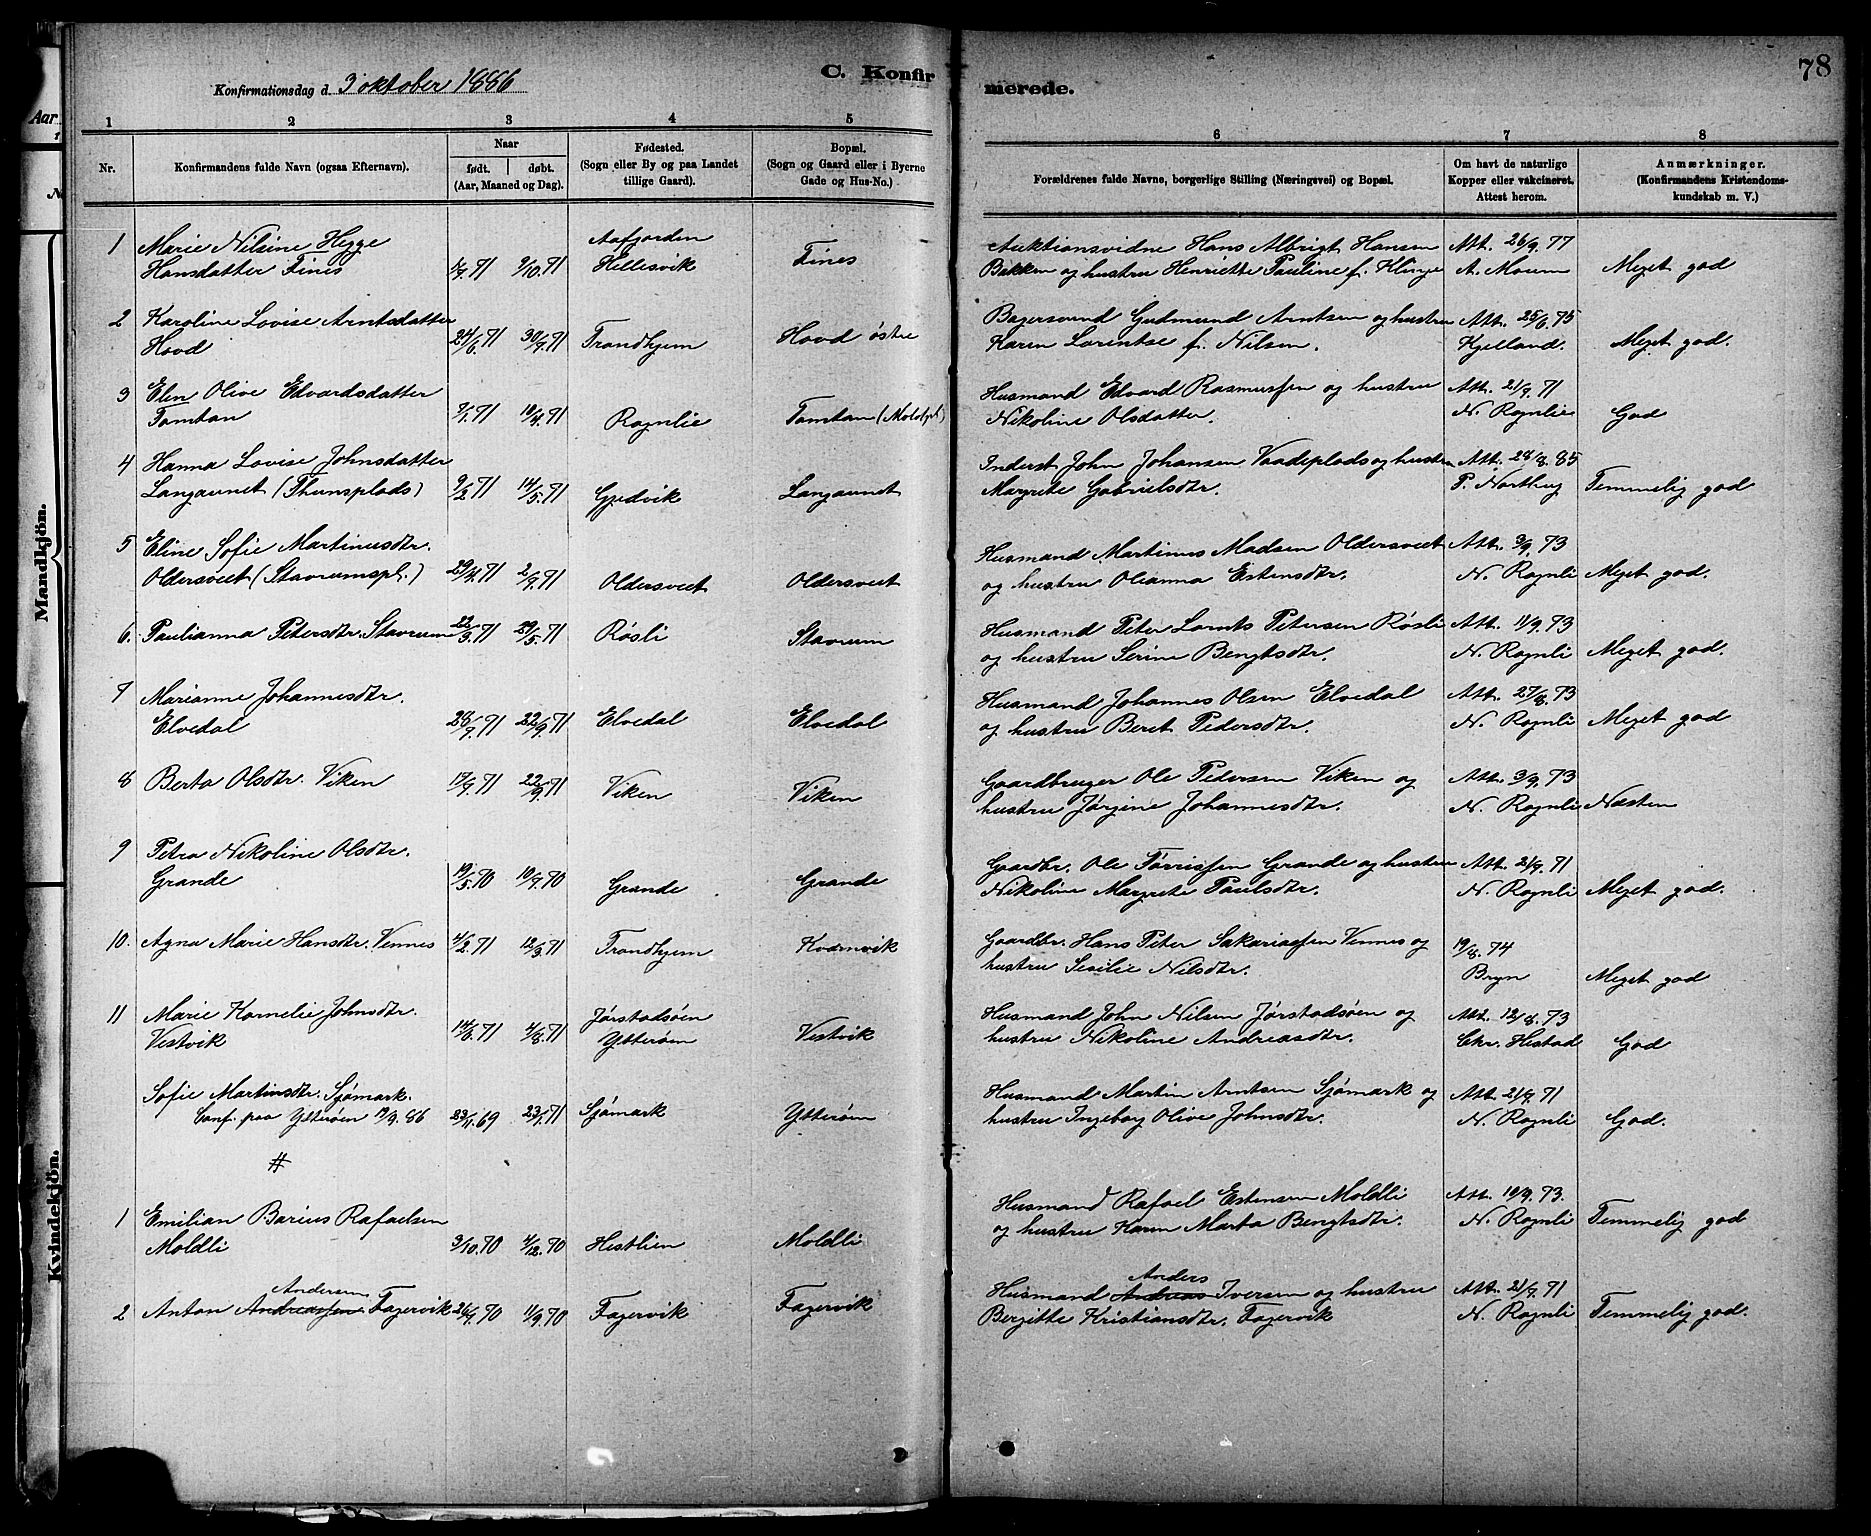 78
Konfirmationsdag d. 3 oktober 1886
C. Konfir
merede.
Aar
1
1 2 3 4 5
6 7 8
Nr.
Konfirmandens fulde Navn (ogsaa Efternavn).
Naar
født. døbt.
(Aar, Maaned og Dag).
Fødested.
(Sogn eller By og paa Landet
tillige Gaard).
Bopæl.
(Sogn og Gaard eller i Byerne
Gade og Hus-No.)
Forældrenes fulde Navne, borgerlige Stilling (Næringsvei) og Bopæl.
Om havt de naturlige
Kopper eller vakcineret.
Attest herom.
Anmærkninger.
(Konfirmandens Kristendoms-
kundskab m. V.)
Mandkjön.
Kvindekjön.
1 Marie Nilsine Hegge Aafjorden Auktionsvidne Hans Albrigt Hansen Att. 26/9. 77
Hansdatter Fines 1/9. 71 9/10. 71 Hellesvik Fines Bakken og hustru Henriette Pauline f. Klinge A. Moum Meget god
2 Karoline Lovise Arntsdatter Bagersvend Gudmund Arntsen og hustru Att. 25/6. 75
Hovd 24/6. 71 30/7. 71 Trondhjem Hovd østre Karen Lorentse f. Nilsen. Kjelland. Meget god.
3 Elen Olive Edvardsdatter Husmand Edvard Rasmussen og hustru Att. 21/9. 71
Tomtan 7/1. 71 10/4. 71 Rognlie Tomtan (Moldpl.) Nikoline Olsdatter. N. Rognlie God
4 Hanna Lovise Johnsdatter Inderst John Johansen Vaadeplads og hustru Att. 28/8. 85
Langaunet (Thunsplads) 9/2. 71 14/5. 71 Gjedvik Langaunet Margrete Gabrielsdtr. P. Northug Temmelig god
5 Eline Sofie Martinusdtr. Husmand Martinus Madsen Oldersveet Att. 3/9. 73
Oldersveet (Stavrumspl.) 29/4. 71 2/7. 71 Oldersveet Oldersveet og hustru Olianna Estensdtr. N. Rognli Meget god.
6. Paulianna Petersdtr. Stavrum 22/3. 71 29/5. 71 Røsli Stavrum Husmand Peter Lornts Petersen Røsli Att. 11/9. 73
og hustru Serine Bengtsdtr. N. Rognli Meget god.
7 Marianne Johannesdtr. Husmand Johannes Olsen Elvedal Att. 27/8. 73
Elvedal 28/7. 71 22/9. 71 Elvedal Elvedal og hustru Beret Pedersdtr. N. Rognli Meget god
8 Berta Olsdtr. Viken 17/7. 71 22/9. 71 Viken Viken Gaardbruger Ole Pedersen Viken og Att. 3/9. 73
hustru Jørgine Johannesdtr. N. Rognli Næsten
9 Petra Nikoline Olsdtr. Gaardbr. Ole Tørrissen Grande og hustru Att. 21/9. 71
Grande 19/5. 70 10/7. 70 Grande Grande Nikoline Margrete Paulsdtr. N. Rognli Meget god.
10. Agna Marie Hansdtr. Vennes 4/2. 71 12/3. 71 Trondhjem Kvamvik Gaardbr. Hans Peter Sakariassen Vennes og 19/8. 74
hustru Sesilie Nilsdtr. Bryn Meget god
11 Marie Kornelie Johnsdtr. Jørstadsøen Husmand John Nilsen Jørstadsøen og Att. 12/8. 73
Vestvik 14/3. 71 4/8. 71 Ytterøen Vestvik hustru Nikoline Andreasdtr. Chr. Hestad God
Sofie Martinsdtr. Sjømark. Husmand Martin Arntsen Sjømark og Att. 21/9. 71
Conf. paa Ytterøen 19/9. 86 23/1. 69 23/1. 71 Sjømark Ytterøen hustru Ingeborg Olive Johnsdtr. N. Rognli God.
#
1 Emilian Barius Rafaelsen Husmand Rafael Estensen Moldli Att. 10/9. 73.
Moldli 3/10. 70 4/12. 70 Hestlien Moldli og hustru Karen Marta Bengtsdtr. N. Rognli Temmelig god
Andersen Anders
2 Anton Andreassen Fagervik 26/7. 70 11/9. 70 Fagervik Fagervik Husmand Andreas Iversen og hustru Att. 21/9. 71
Bergitte Kristiansdtr. Fagervik N. Rognli Temmelig god.